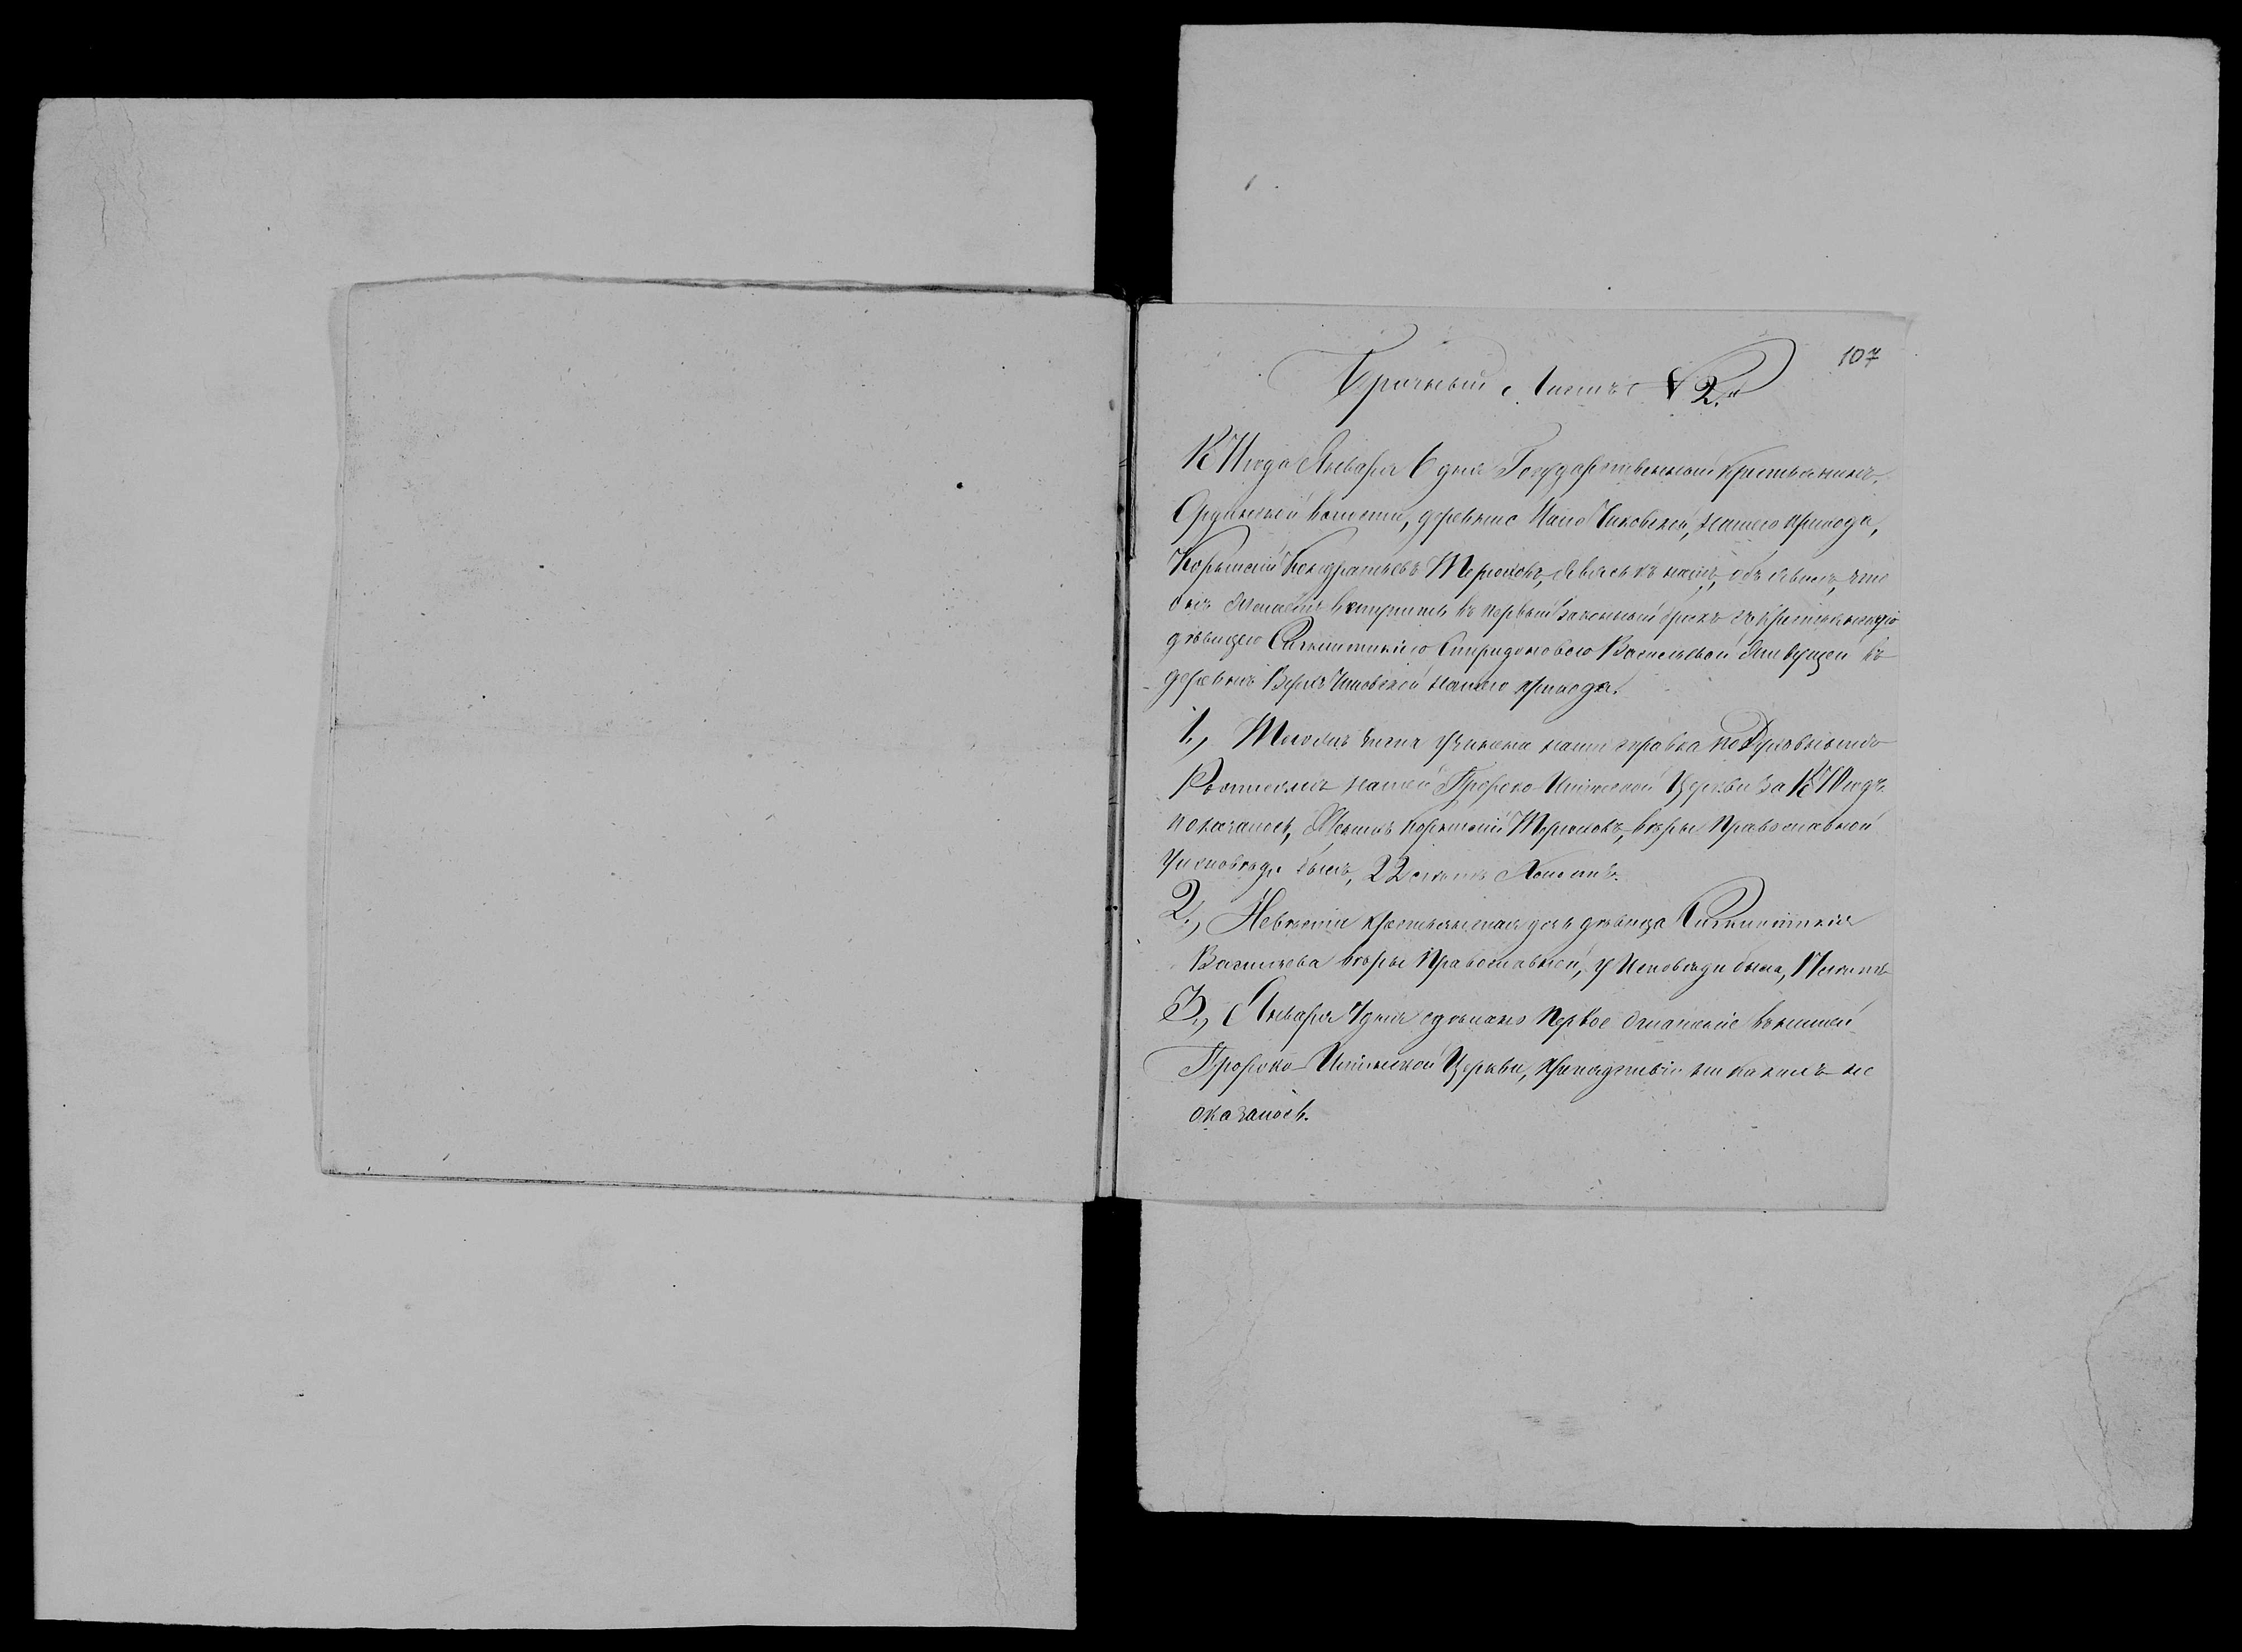 107
Брачный Листъ № 2.й
года Января 6 дня Государственный крестьянинъ
Ординской волости, деревни Мало Чиковской, нашего прихода,
Корнилий Кондратьевъ Терюковъ, явясь къ намъ, объявилъ, что
онъ желаетъ вступить въ первый законный бракъ съ крестьянскую
дѣвицею Синклитикіею Спиридоновою Васильевой живущей въ
деревнѣ Верхъ Чиковской нашего прихода.
1., Тогожъ числа учинена нами справка по Духовнымъ
Росписямъ нашей Пророко-Ильинской Церкви за годъ
показалось, Женихъ Корнилий Терюковъ, вѣры Православной
у исповѣди былъ, 22 лѣтъ Холостъ.
2., Невѣста крестьянская дочь дѣвица Синклитикія
Васильева вѣры Православной, у Исповѣди была, лѣтъ
3., Января дня сдѣлано первое оглашеніе въ нашей
Пророко-Ильинской Церкви, препядствій ни какихъ не
оказалось.